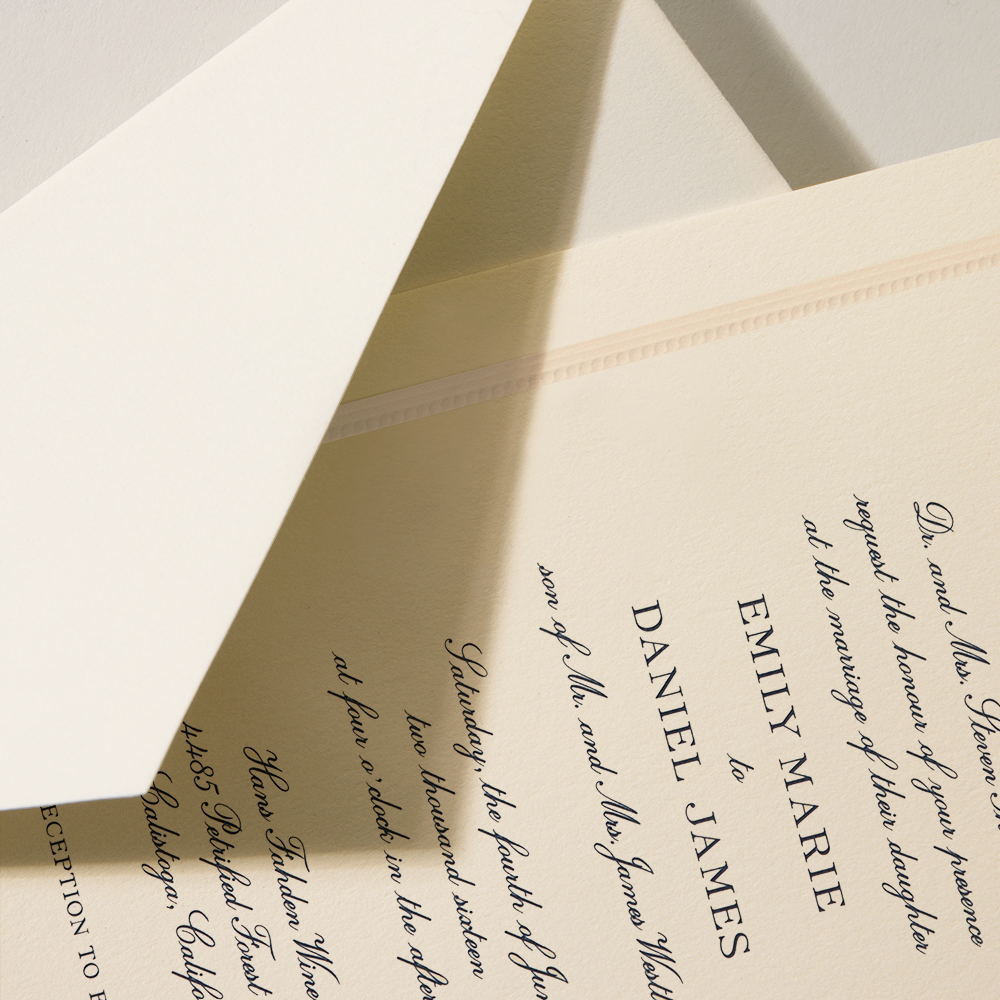 Dr. and Mrs. Steven
request the honour of your presence
at the marriage of their daughter
EMILY MARIE
to
DANIEL JAMES
son of Mr. and Mrs. James
Saturday, the fourth of
two thousand sixteen
at four o'clock in the
Hans Fahden
4485 Petrified Forest
Calistoga,
TO